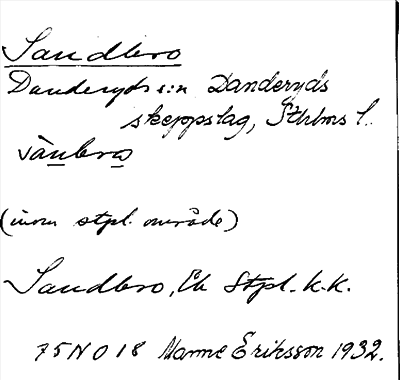 Sandbro
Danderyds s:n Danderyds
skeppslag, Sthlms l.
sànbro
(inom stpl. område)
Sandbro, Ek Stpl. k.k.
75NO18 Manne Eriksson 1932.